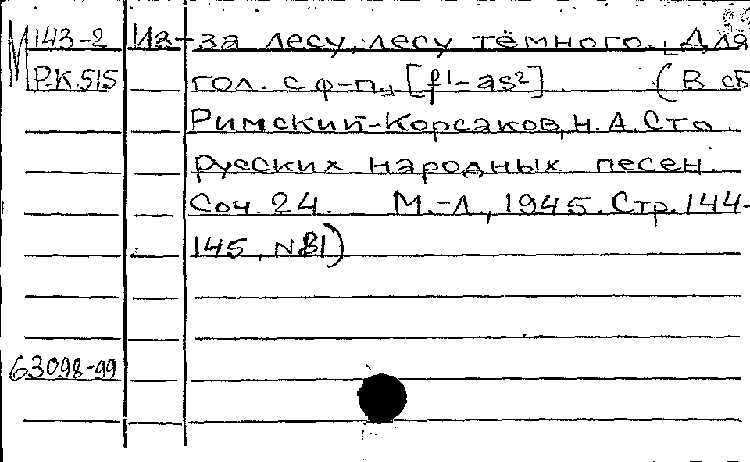 М 143-2 Из-за лесу, лесу тёмного. Для
Р.К 515 гол. с ф-п. [f¹-as²]. (В сб
Римский-Корсаков, Н. А. Сто
русских народных песен.
Соч. 24. М.-Л., 1945. Стр. 144-
145, N81)
63098-99